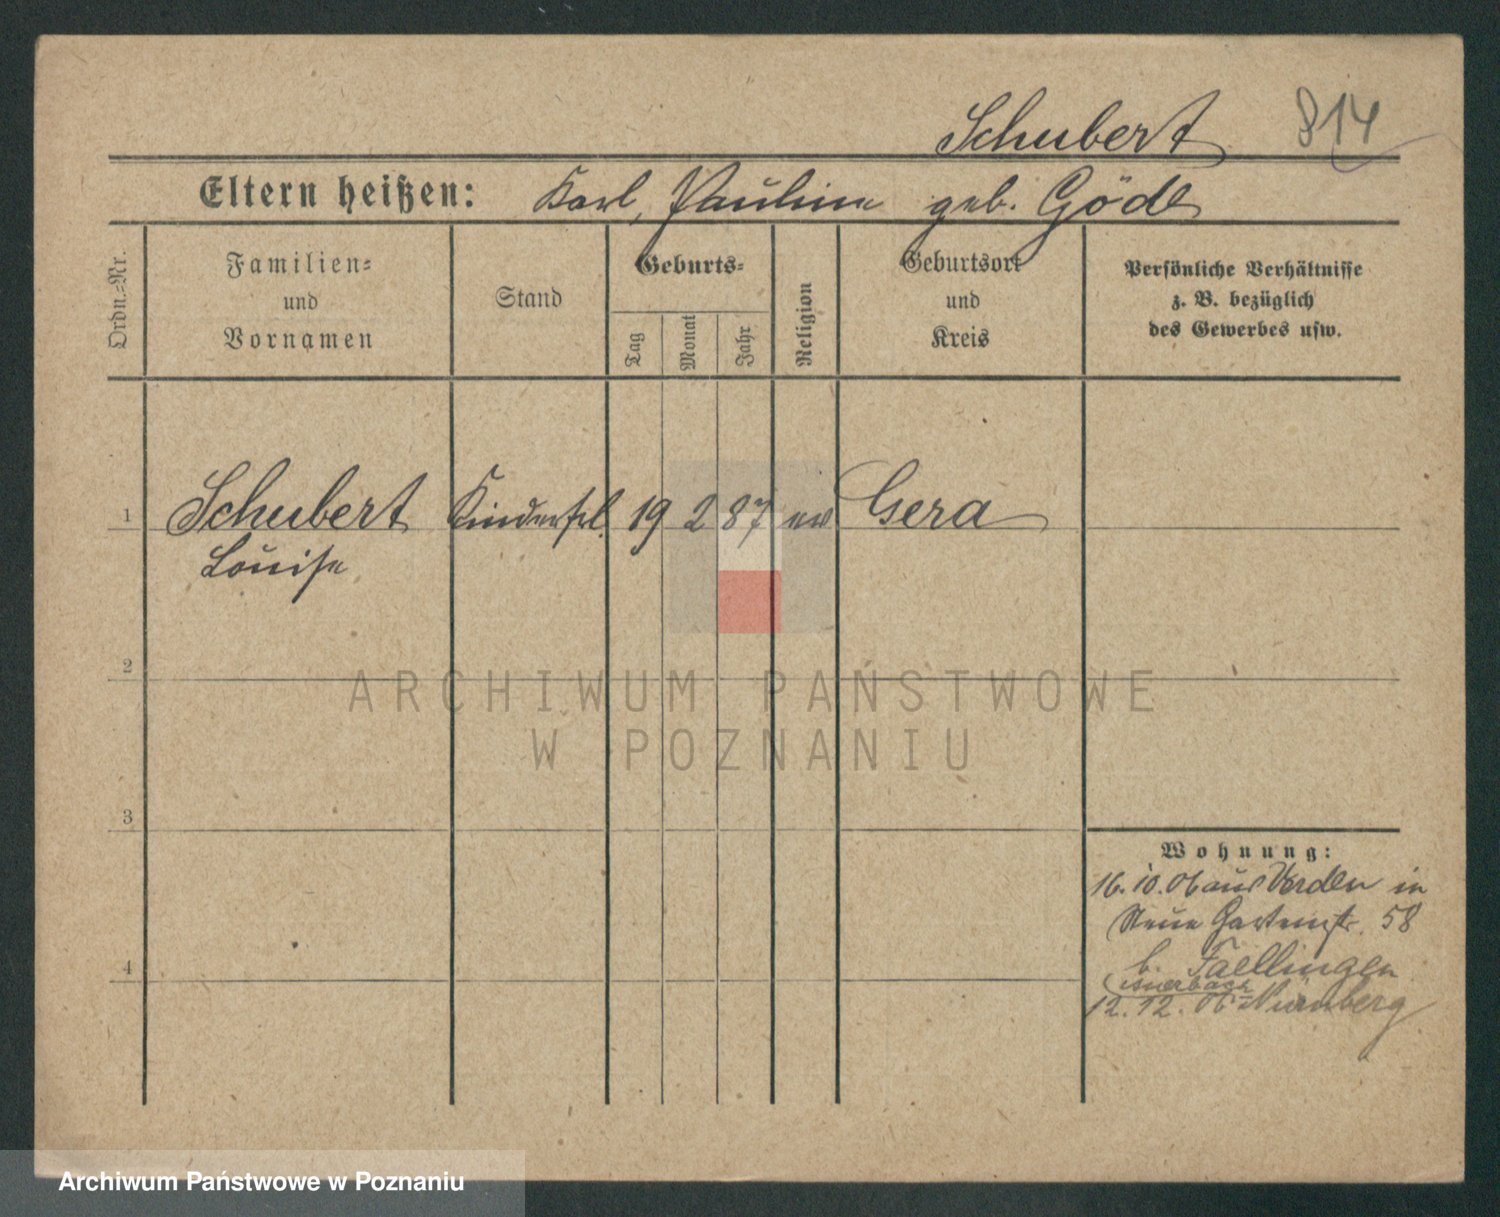 Schubert 814
Eltern heißen: Karl, Pauline geb. Göde
Ordn.-Nr.
Familien-
und
Vornamen
Stand
Geburts-
Tag
Monat
Jahr
Religion
Geburtsort
und
Kreis
Persönliche Verhältnisse
z. B. bezüglich
des Gewerbes usw.
1 Schubert Kinderfrl. 19 2 87 ev Gera
Louise
2
3
4
Wohnung:
16.10.06 aus Verden in
Neue Gartenstr. 58
b.
12.12.06 Nürnberg
ARCHIWUM PAŃSTWOWE
W POZNANIU
Archiwum Państwowe w Poznaniu